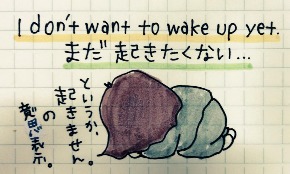 I don't want to wake up yet.
まだ起きたくない…
というか、
起きません。
の
意思表示。